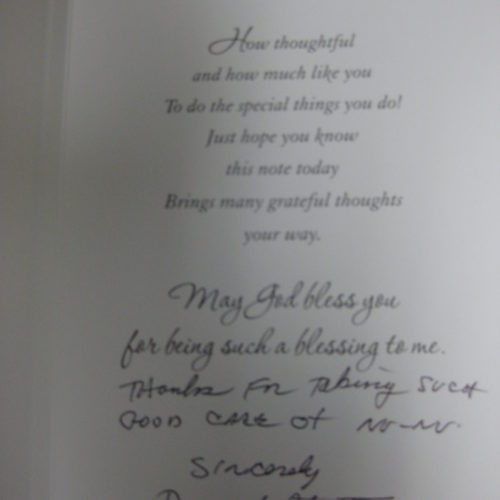 How thoughtful
and how much like you
To do the special things you do!
Just hope you know
this note today
Brings many grateful thoughts
your way.
May God bless you
for being such a blessing to me.
THANKS FOR TAKING SUCH
GOOD CARE OF NU-NU.
Sincerely